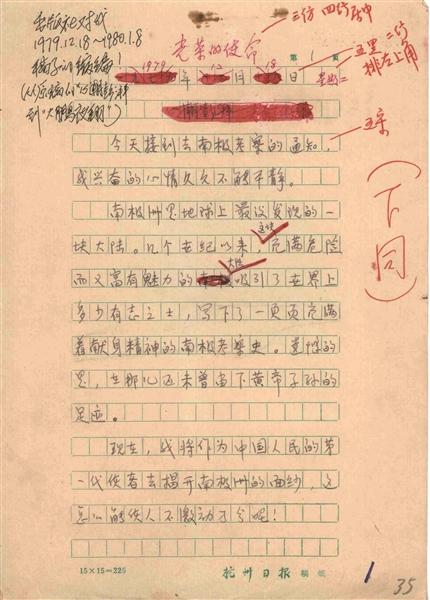 光荣的使命
三仿 四行居中
第 1 页
1979年12月18日 星期二
五黑
排左上角
1979.12.18~1980.1.8
五宋
今天接到去南极考察的通知,
我兴奋的心情久久不能平静。
南极洲是地球上最后发现的一
块大陆。几个世纪以来,这块充满危险
而又富有魅力的大陆吸引了世界上
多少有志之士,写下了一页页充满
着献身精神的南极考察史。遗憾的
是,在那儿还未曾留下黄帝子孙的
足迹。
现在,我将作为中国人民的第
一代使者去揭开南极洲的面纱,这
怎么能使人不激动万分呢!
(下同)
15×15=225
杭州日报 稿纸
1
35